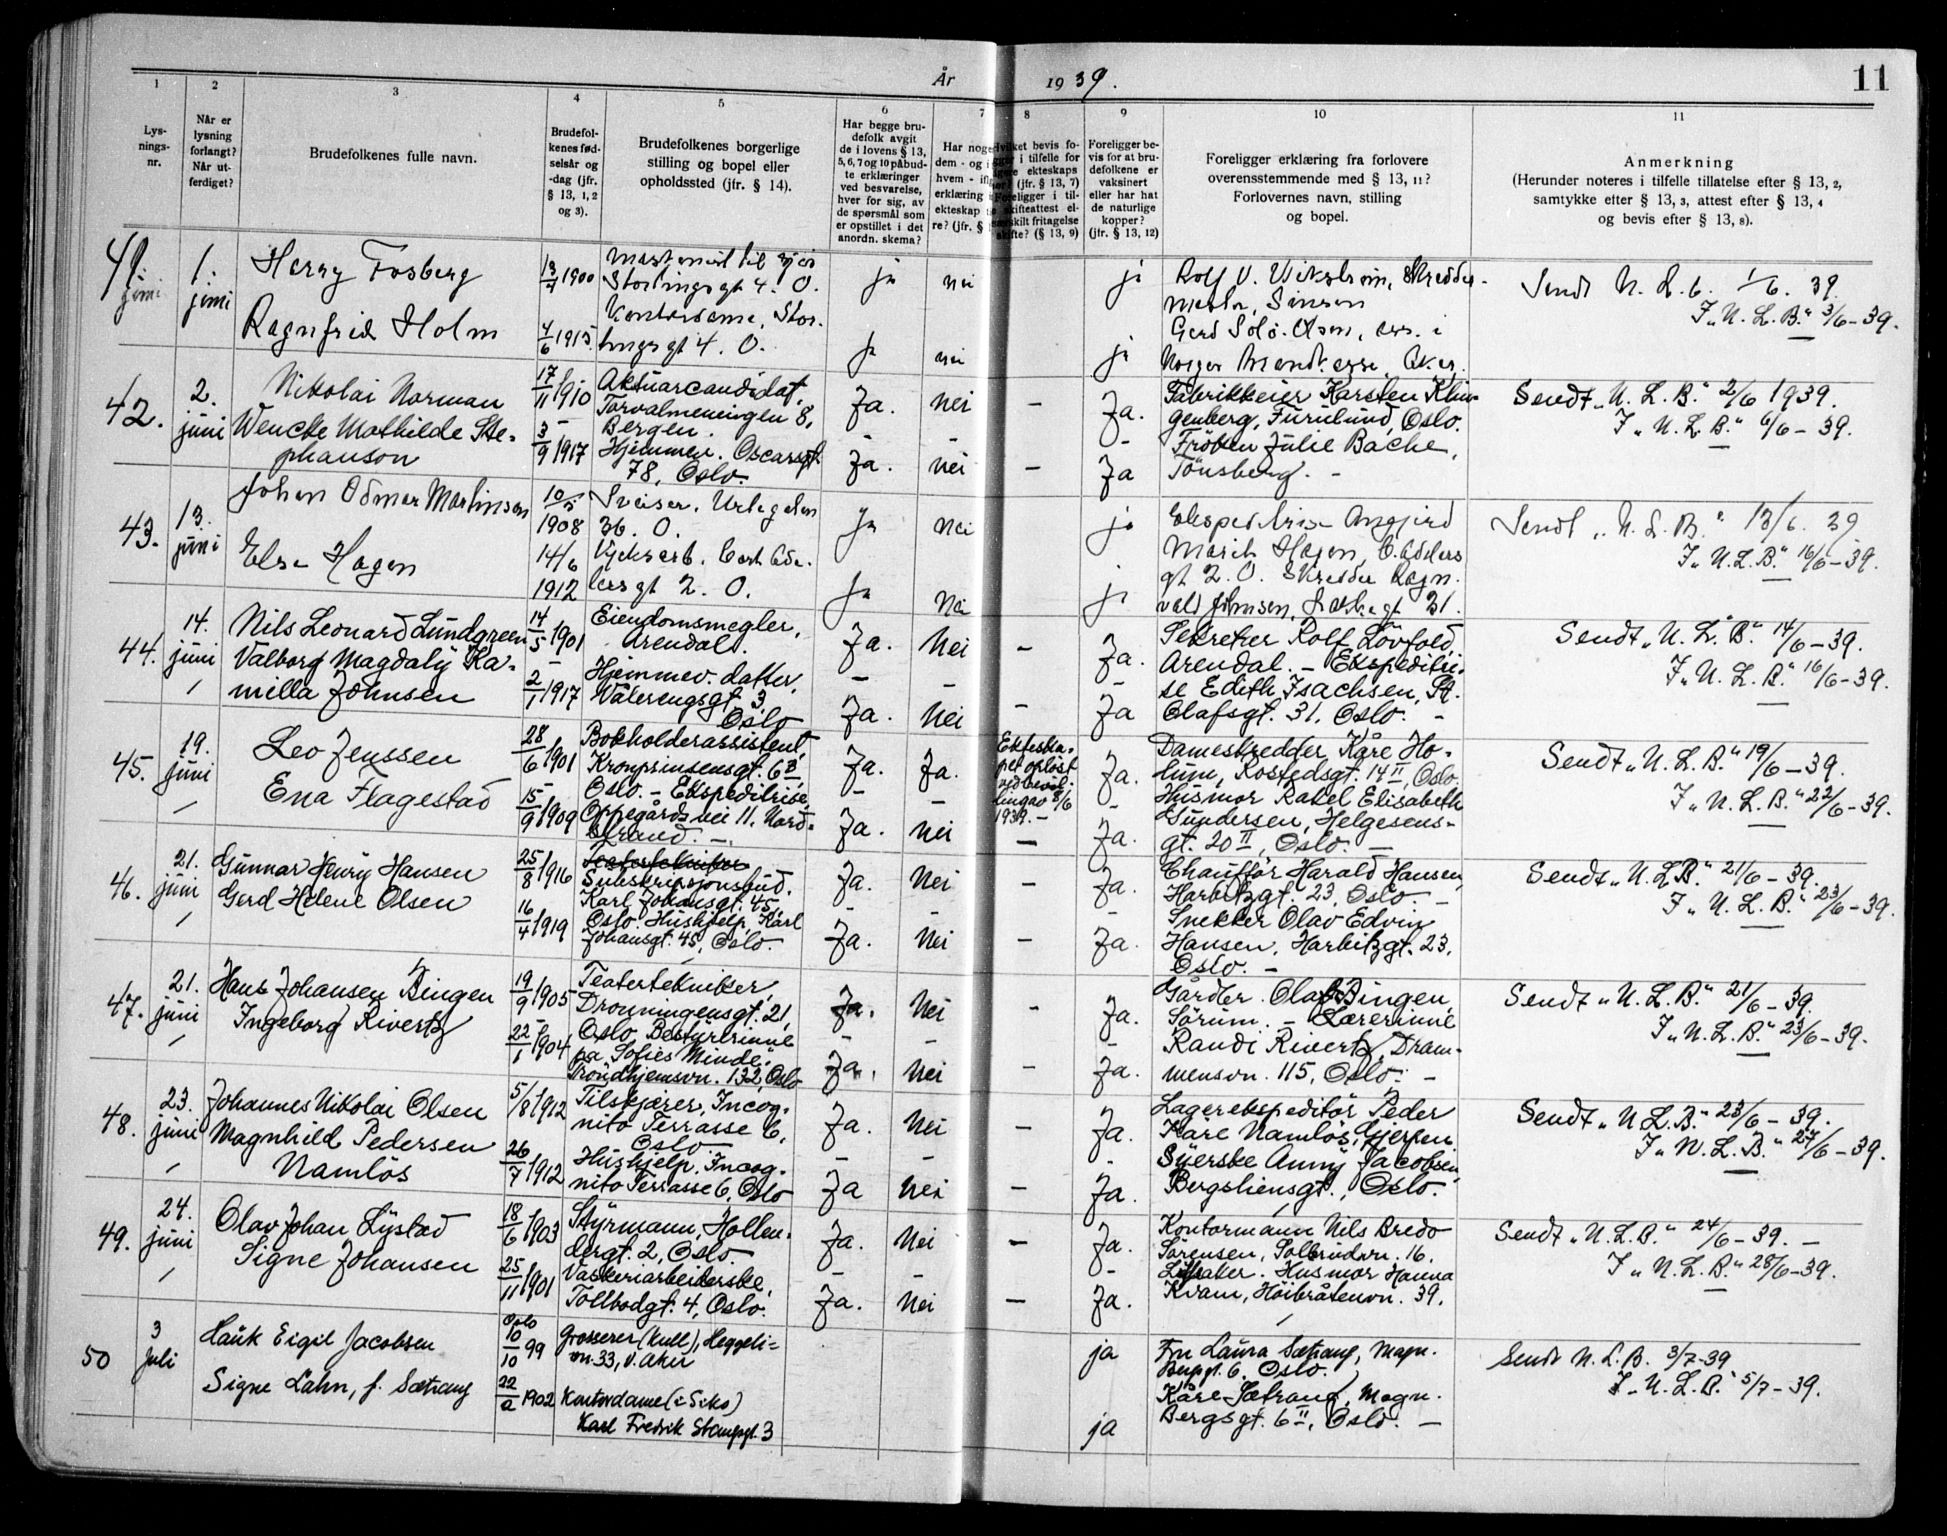 År 1939.
11
1 2 3 4 5 6 7 8 9 10 11
Lys-
nings-
nr.
Når er
lysning
forlangt?
Når ut-
ferdiget?
Brudefolkenes fulle navn.
Brudefol-
kenes fød-
selsår og
-dag (jfr.
§ 13, 1, 2
og 3).
Brudefolkenes borgerlige
stilling og bopel eller
opholdssted (jfr. § 14).
Har begge bru-
defolk avgit
de i lovens § 13,
5, 6, 7 og 10 påbud-
te erklæringer
ved besvarelse,
hver for sig, av
de spørsmål som
er opstillet i det
anordn. skema?
Har nogen
dem - og i
hvem - ifl
erklæring
ekteskap
re? (jfr. §
Foreligger be-
vis for at bru-
defolkene er
vaksinert
eller har hat
de naturlige
kopper?
(jfr. § 13, 12)
Foreligger erklæring fra forlovere
overensstemmende med § 13, 11?
Forlovernes navn, stilling
og bopel.
Anmerkning
(Herunder noteres i tilfelle tillatelse efter § 13, 2,
samtykke efter § 13, 3, attest efter § 13, 4
og bevis efter § 13, 8).
41.
1.
juni
Harry Fosberg
13/7 1900
Stortingsgt 4. O.
ja
nei
ja
Rolf V. Wikstrøm, Skredder-
mester, Sinsen
Sendt N. L. B. 1/6. 39.
I „N. L. B.“ 3/6-39.
Ragnfrid Holm
4/6 1915
Kontordame, Stor-
tingsgt 4. O.
ja
nei
ja
42.
2.
juni
Nikolai Norman
17/11 1910
Aktuarcandidat.
Torvalmeningen 8,
Bergen.
Ja.
Nei
-
Ja.
Fabrikkeier Karsten Klin-
genberg, Furulund, Oslo.
Sendt „N. L. B.“ 2/6 1939.
I „N. L. B.“ 6/6-39.
Wencke Mathilde Ste-
phanson
3/9 1917
Hjemmev. Oscarsgt.
78, Oslo.
Ja.
nei
-
Ja
Frøken Julie Bache,
Tönsberg. -
43.
13.
juni
Johan Odmar Martinsen
10/5
1908
Sveiser. Urtegaten
36. O.
ja
nei
ja
Ekspeditrise Magnid
Marit Hagen, C. Adelers
gt 2. O. Skredder Ragn-
vald Johnsen,
Sendt „N. L. B.“ 13/6. 39
I „N. L. B.“ 16/6-39.
Else Hagen
14/6
1912
Cort Ade-
lers gt 2. O.
ja
nei
ja
44.
14.
juni
Nils Leonard Lundgreen
14/5 1901
Eiendomsmegler,
Arendal.
Ja.
Nei
-
Ja.
Sekretær Rolf Lövfold,
Arendal. - Ekspeditri-
se Edith Isachsen, St.
Olafsgt. 31, Oslo. -
Sendt „N. L. B.“ 14/6-39.
I „N. L. B.“ 16/6-39.
Valborg Magdaly Ka-
milla Johnsen
2/1 1917
Hjemmev. datter,
Vålerengsgt. 3,
Oslo
Ja.
Nei
-
Ja
45.
19.
juni
Leo Jenssen
28/6 1901
Bokholderassistent,
Kronprinsensgt. 6B,
Oslo. - Ekspeditrise,
Ja.
Ja.
Ekteska-
pet opløst
ved bevil-
ling av 8/6
1939. -
Ja.
Dameskredder Kåre Ho-
lum, Rostedsgt. 14 II, Oslo.
Husmor Rakel Elisabeth
Gundersen, Helgesens-
gt. 20 II, Oslo. -
Sendt „N. L. B.“ 19/6-39.
I „N. L. B.“ 22/6-39.
Ena Flagestad
15/9 1909
Oppegårdsvei 11, Nord-
strand -
Ja.
Nei
-
Ja.
46.
21.
juni
Gunnar Henry Hansen
25/8 1916
Teatertekniker
Subskripsjonsbud.
Karl Johansgt. 45,
Oslo. Hushjelp, Karl
Johansgt. 45, Oslo.
Ja.
Nei
-
Ja.
Chauffør Harald Hansen,
Harbitzgt. 23, Oslo. -
Snekker Olav Edvin
Hansen, Harbitzgt. 23,
Oslo. -
Sendt „N. L. B.“ 21/6-39.
I „N. L. B.“ 23/6-39.
Gerd Helene Olsen
16/4 1919
Ja.
Nei
-
Ja.
47.
21.
juni
Hans Johansen Bingen
19/9 1905
Teatertekniker,
Dronningensgt. 21,
Oslo. Bestyrerinne
på „Sofies Minde“,
Trondhjemsvn. 132, Oslo
Ja.
Nei
-
Ja.
Gårdbr. Olaf Bingen,
Sörum. - Lærerinne
Randi Rivertz, Dram-
mensvn. 115, Oslo. -
Sendt „N. L. B.“ 21/6-39.
I „N. L. B.“ 23/6-39.
Ingeborg Rivertz
22/1 1904
Ja.
Nei
Ja.
48.
23.
juni
Johannes Nikolai Olsen
5/8 1912
Tilskjærer, Incog-
nito Terrasse 6,
Oslo.
Ja.
Nei
-
Ja.
Lagerekspeditör Peder
Kåre Namlös, Gjerpen
Syerske Anny Jacobsen,
Bergsliensgt., Oslo.
Sendt „N. L. B.“ 23/6-39.
I „N. L. B.“ 27/6-39.
Magnhild Pedersen
Namlös
26/7 1912
Hushjelp, Incog-
nito Terrasse 6, Oslo
Ja
Nei
-
Ja.
49.
24.
juni
Olav Johan Lystad
18/6 1903
Styrmann, Hollen-
dergt. 2, Oslo.
Ja.
Nei
-
Ja.
Kontormann Nils Bredo
Sörensen, Solbrudvn. 16,
Lysaker. Husmor Hanna
Kvam, Höibråtenvn. 39.
Sendt „N. L. B.“ 24/6-39. -
I „N. L. B.“ 28/6-39.
Signe Johansen
25/11 1901
Vaskeriarbeiderske,
Tollbodgt. 4, Oslo.
Ja.
Nei
-
Ja.
50
3
juli
Hauk Eigil Jacobsen
Oslo
10/10 99
Grosserer (kull), Heggeli-
vn. 33, V. Aker
ja
Fru Laura Sætrang, Magn.
Bergsgt. 6. Oslo.
Kåre Sætrang, Magn.
Bergsgt. 6 II, Oslo. -
Sendt N. L. B. 3/7-39
I „N. L. B.“ 5/7-39.
Signe Lahn, f. Sætrang
22/2 1902
Kontordame
Karl Fredrik
ja